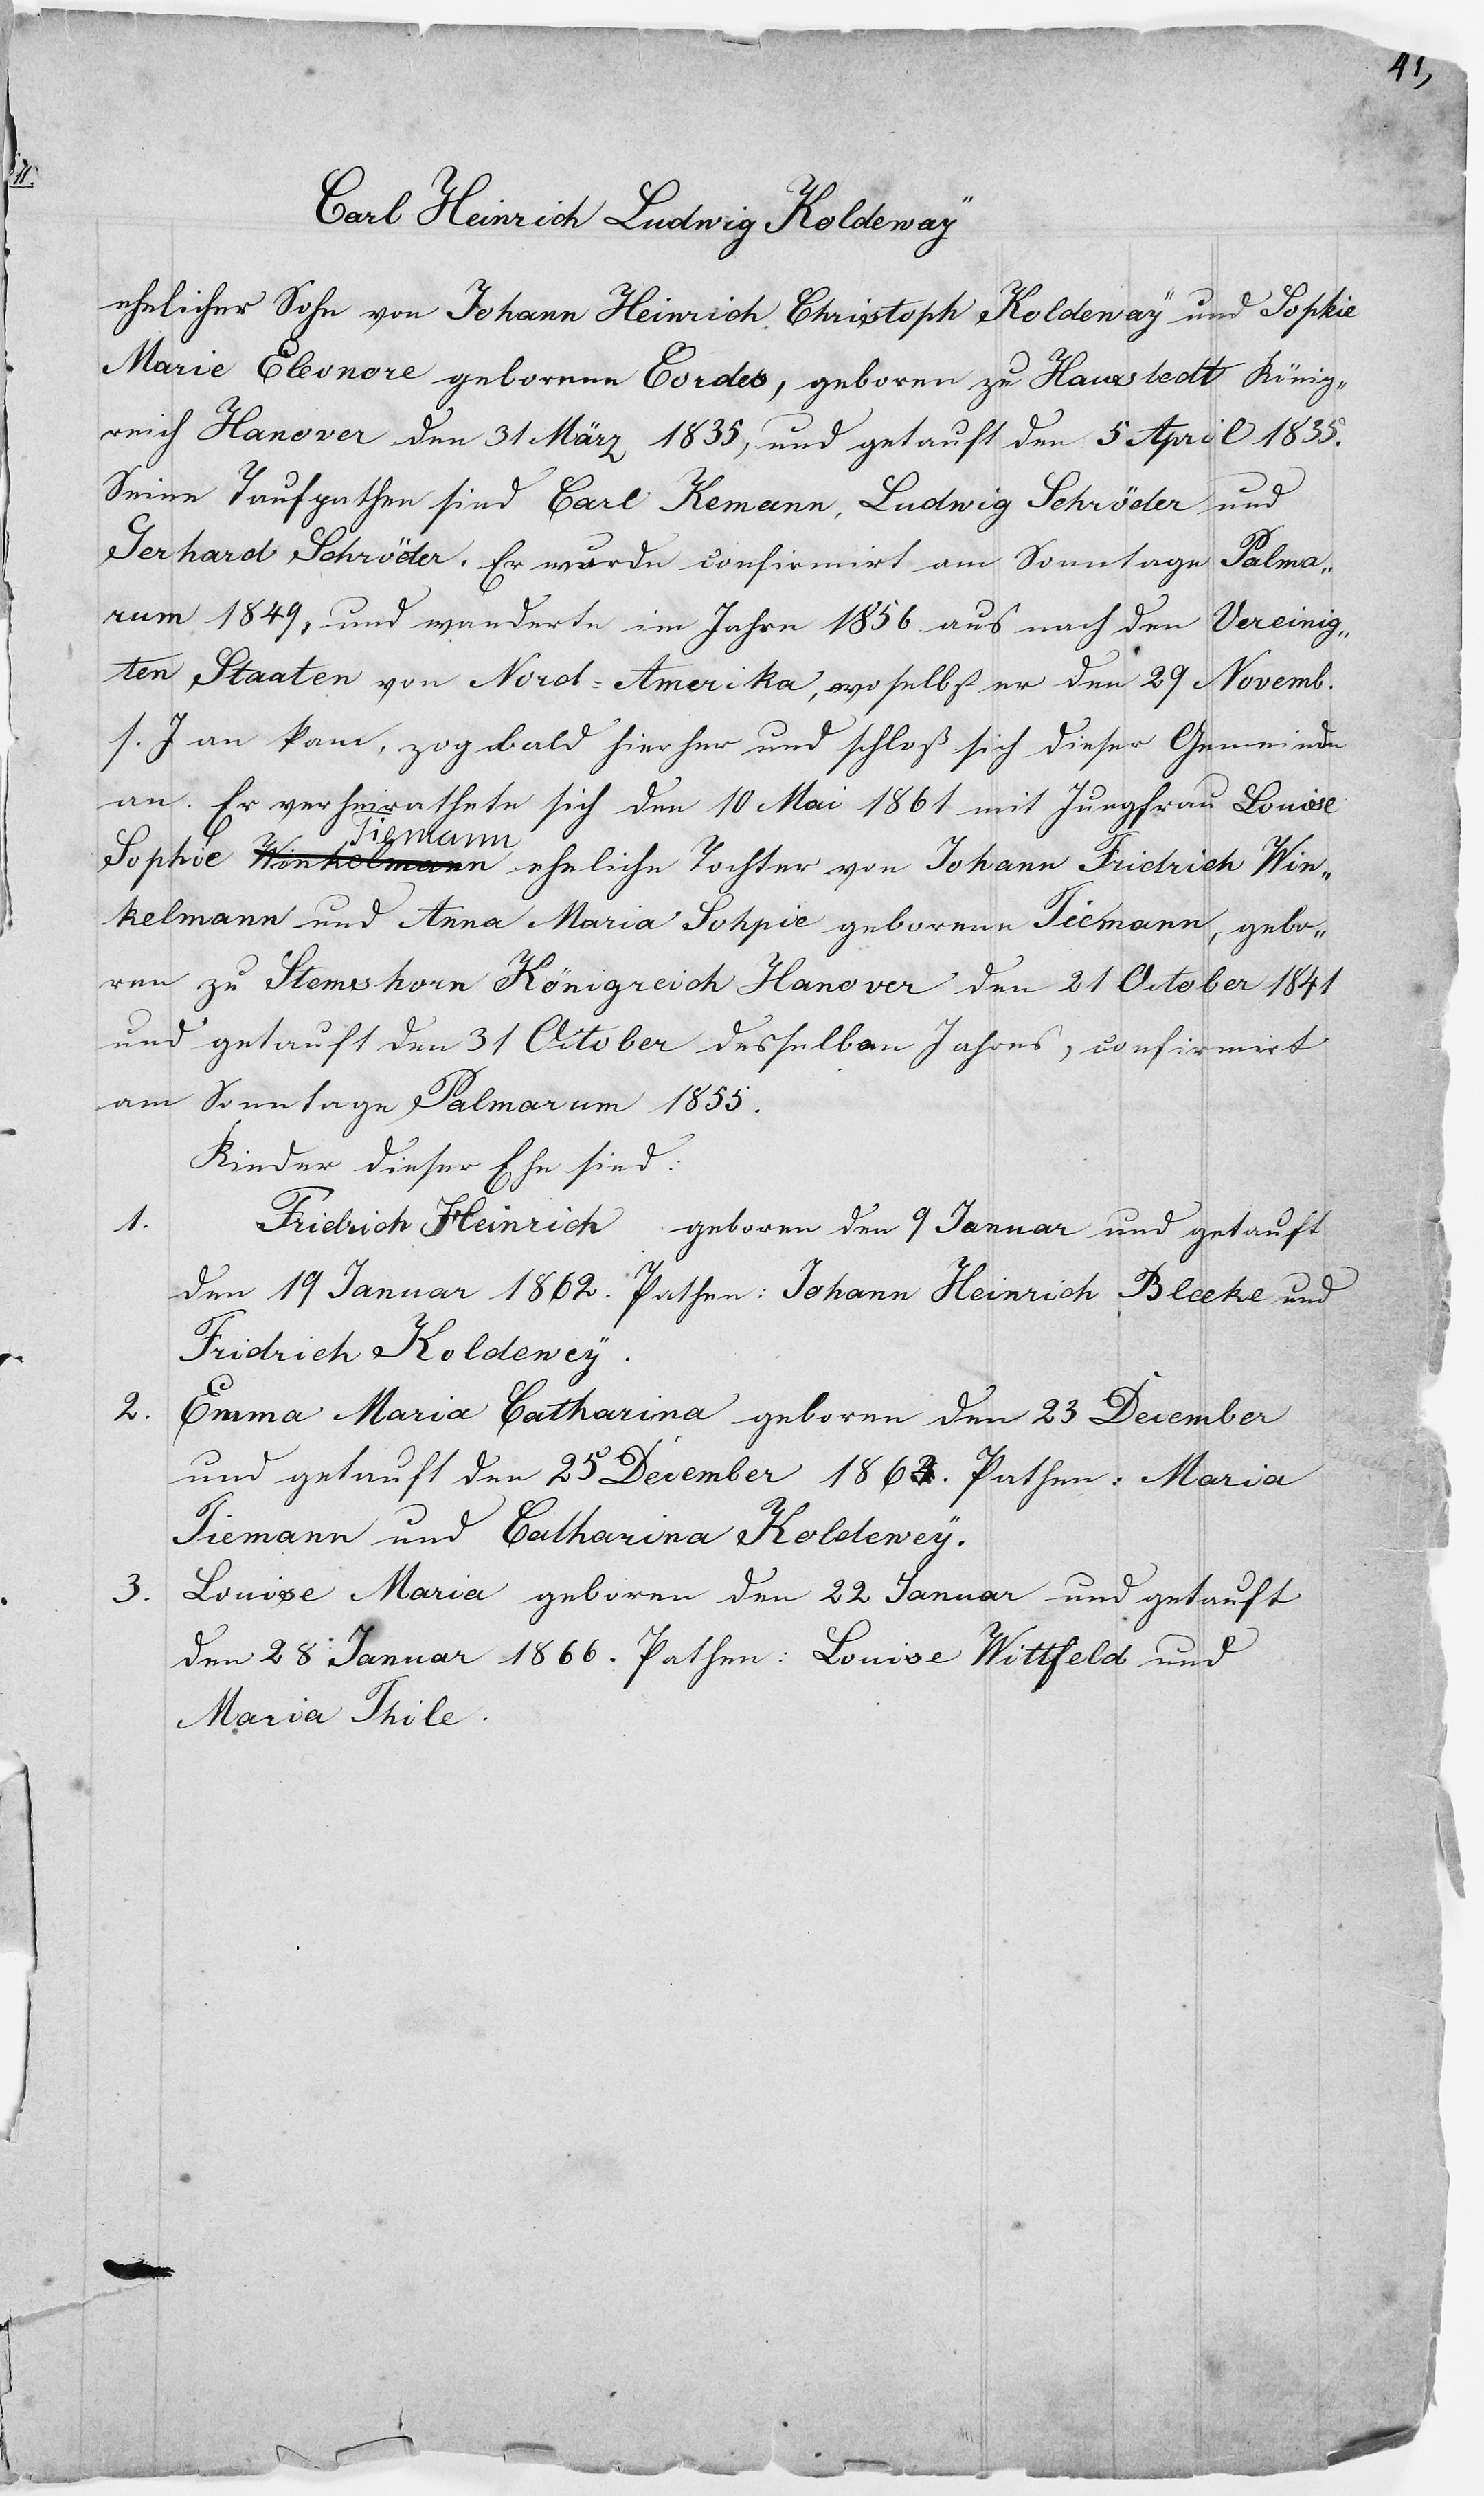 41,
Carl Heinrich Ludwig Koldeway
ehelicher Sohn von Johann Heinrich Christoph Koldeway und Sophie
Marie Eleonore geborene Cordes, geboren zu Haustedt König„
reich Hanover den 31 März 1835, und getauft den 5 April 1835.
Seine Taufpathen sind Carl Kemann, Ludwig Schröder und
Gerhard Schröder. Er wurde confirmirt am Sonntage Palma„
rum 1849, und wanderte im Jahre 1856 aus nach den Vereinig„
ten Staaten von Nord=Amerika, woselbst er den 29 Novemb.
s. J an kam, zog bald hierher und schloß sich dieser Gemeinde
an. Er verheirathete sich den 10 Mai 1861 mit Jungfrau Louise
Tiemann
Sophie Winkelmann eheliche Tochter von Johann Fridrich Win„
kelmann und Anna Maria Sohpie geborene Tiemann, gebo„
ren zu Stemshorn Königreich Hanover den 21 October 1841
und getauft den 31 October desselben Jahres, confirmirt
am Sonntage Palmarum 1855.
Kinder dieser Ehe sind:
1. Fridrich Heinrich geboren den 9 Januar und getauft
den 19 Januar 1862. Pathen: Johann Heinrich Bleeke und
Fridrich Koldeweÿ.
2. Emma Maria Catharina geboren den 23 December
und getauft den 25 December 1863. Pathen: Maria
Tiemann und Catharina Koldeweÿ.
3. Louise Maria geboren den 22 Januar und getauft
den 28 Januar 1866. Pathen: Louise Wittfeld und
Maria Thile.